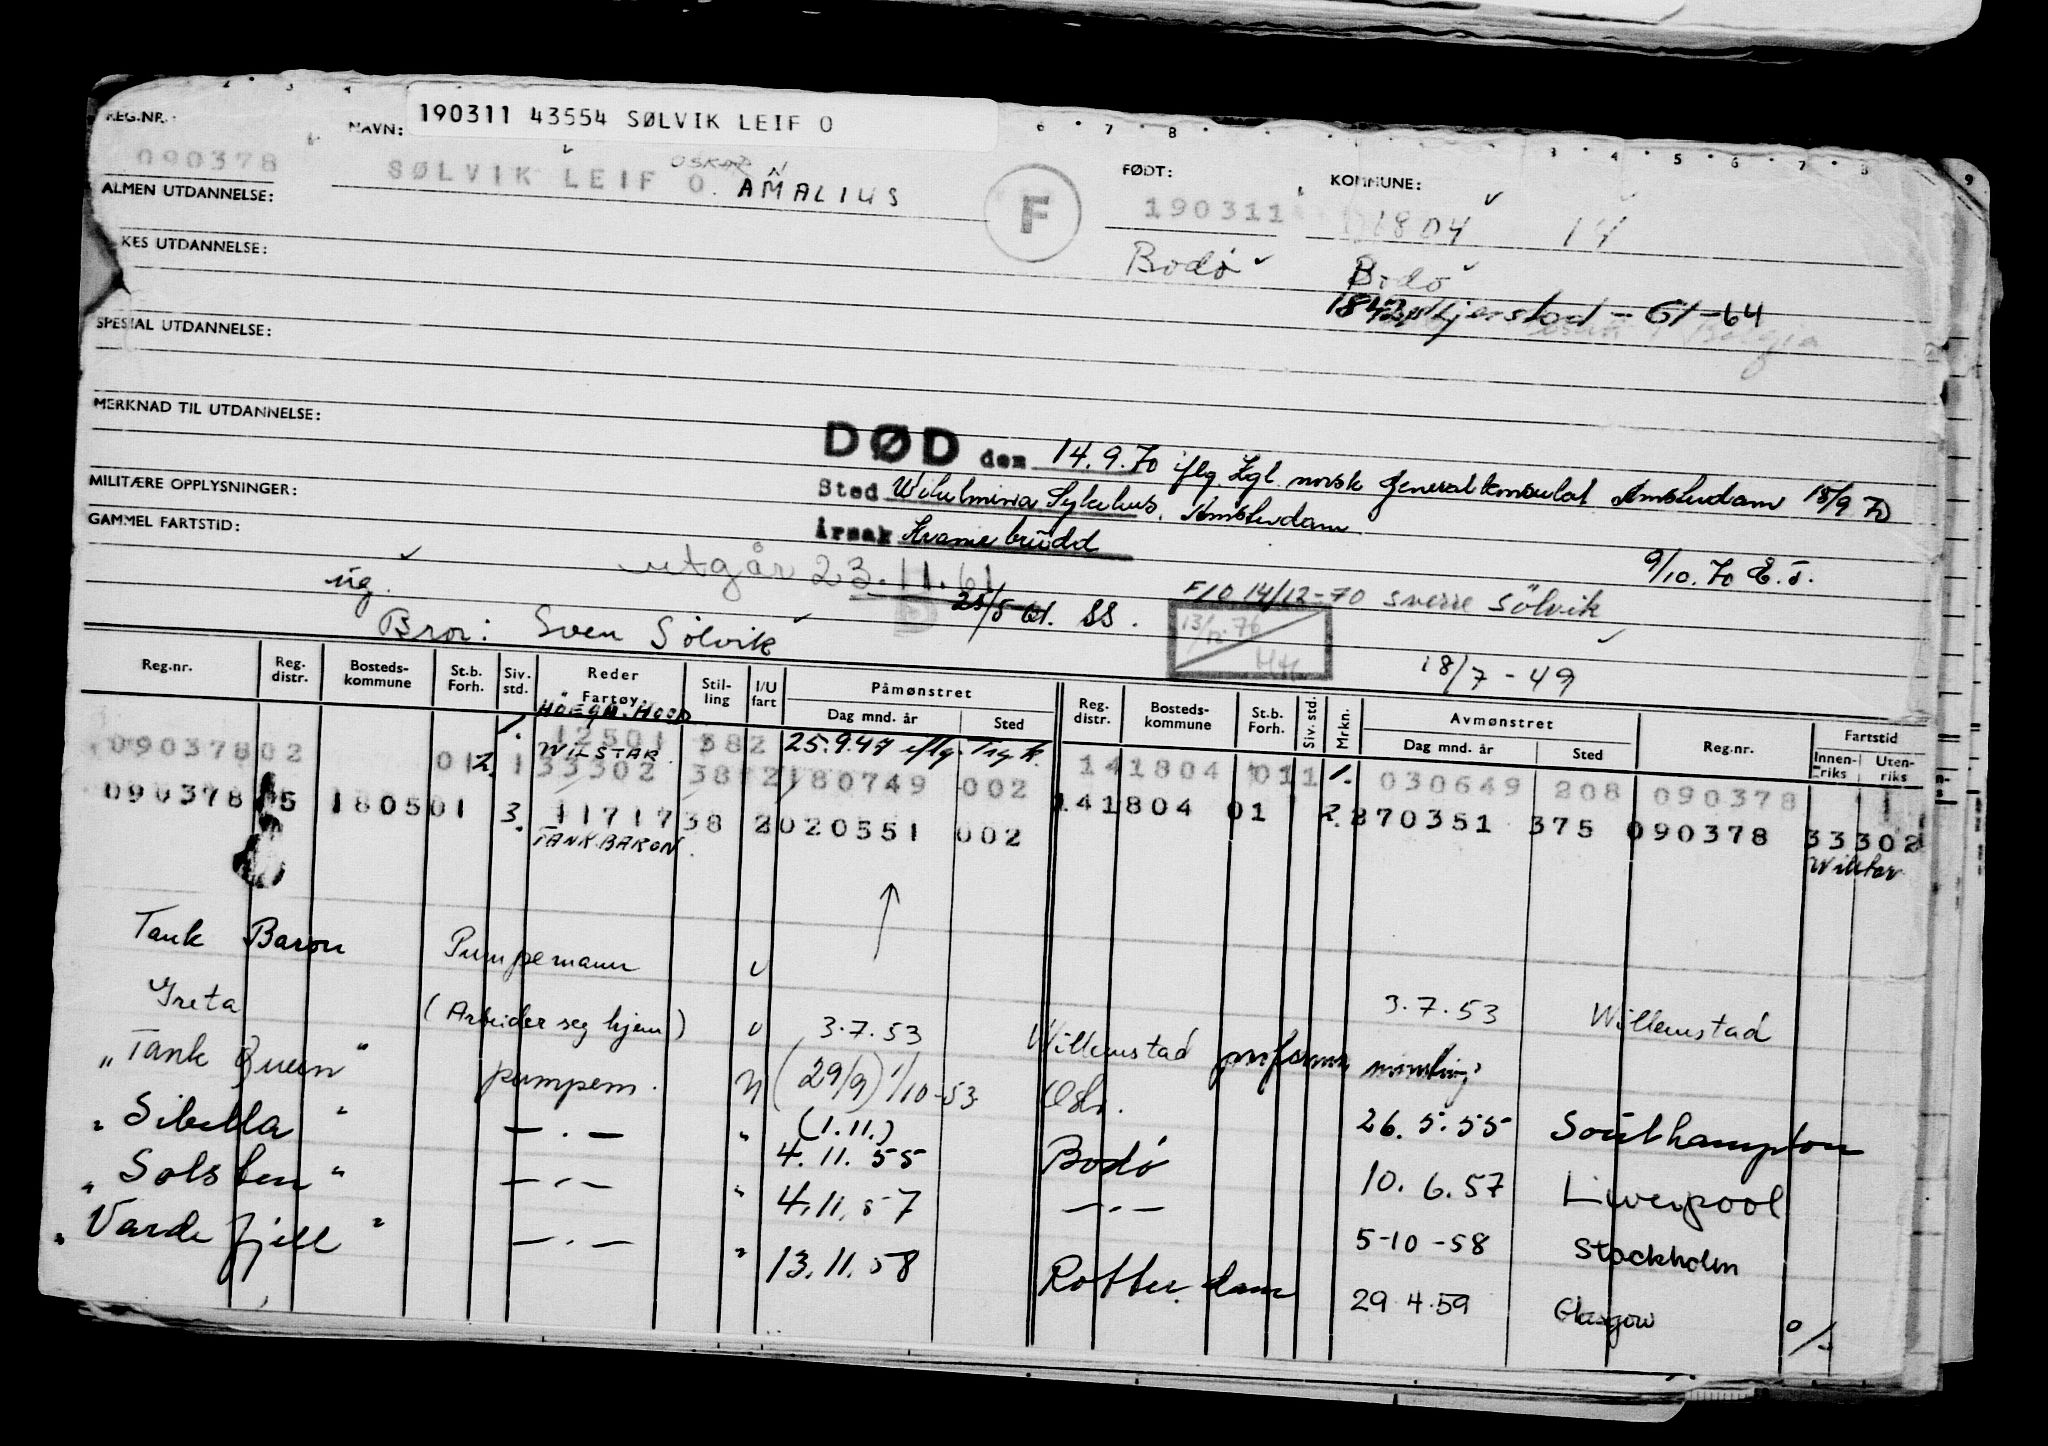 190311 43554 SØLVIK LEIF O
REG.NR. NAVN: FØDT: KOMMUNE:
090378 SØLVIK LEIF O. OSKAR AMALIUS F 190311 1804 14
ALMEN UTDANNELSE:
KES UTDANNELSE: Bodø Bodø
1842 Skjerstad - 61-64
SPESIAL UTDANNELSE:
MERKNAD TIL UTDANNELSE:
DØD den 14.9.70 iflg. norsk Generalkonsulat Amsterdam 15/9 70
MILITÆRE OPPLYSNINGER: Sted Wilhelmina Sykehus, Amsterdam
GAMMEL FARTSTID: Årsak
9/10.70 E.T.
ug. utgår 23.11.61
25/5 61. SS. F/O 14/12-70 sverre Sölvik
Bror: Sven Sölvik 13/12.76 18/7-49
Reg.nr. Reg. distr. Bosteds-kommune St.b. Forh. Siv. std. Reder Fartøy Stil-ling I/U fart Påmønstret Dag mnd. år Sted Reg. distr. Bosteds-kommune St.b. Forh. Siv. std. Mrkn. Avmønstret Dag mnd. år Sted Reg.nr. Fartstid Innen-riks Uten-riks
HÖEGH HOOD
1. 12501 382 25.9.47 iflg. Trg.k.
09037802 01 2. 1 WILSTAR 33302 38 2 180749 002 141804 011 1. 030649 208 090378
090378 5 180501 3. 11717 38 2 020551 002 141804 01 2. 270351 375 090378 33302
TANK BARON. Wilstar
Tank Baron Pumpemann U 3.7.53 Willemstad
Greta (Arbeider seg hjem) U 3.7.53 Willemstad proforma
"Tank Queen" pumpem. U (29/9) 1/10-53 Oslo. 26.5.55 Southampton
" Sibella " — . — " (1.11.) 4.11.55 Bodø 10.6.57 Liverpool
" Solsten " — . — " 4.11.57 — . — 5-10-58 Stockholm
" Varde fjell " — . — " 13.11.58 Rotterdam 29.4.59 Glasgow